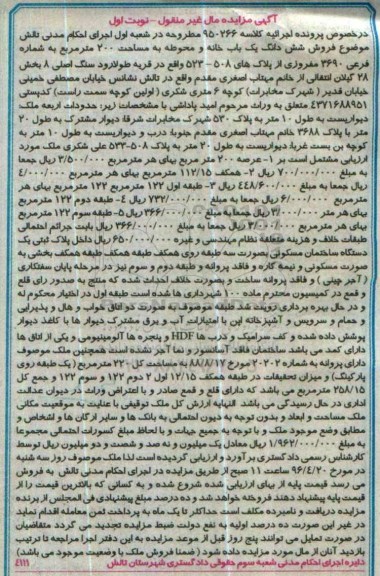 آگهی مزایده مال غیر منقول - نوبت اول
درخصوص پرونده اجرائیه کلاسه ۹۵۰۲۶۶ مطروحه در شعبه اول اجرای احکام مدنی تالش
موضوع فروش شش دانگ یک باب خانه و محوطه به مساحت ۲۰۰ مترمربع به شماره
فرعی ۳۶۹۰ مفروزی از پلاک های ۵۰۸ - ۵۲۳ واقع در قریه طولارود سنگ اصلی ۸ بخش
۲۸ گیلان انتقالی از خانم مهتاب اصغری مقدم واقع در تالش نشانی خیابان مصطفی خمینی
خیابان قدیر ( شهرک مخابرات) کوچه ۶ متری شکری ( اولین کوچه سمت راست) کدپستی
۴۳۷۱۶۸۸۹۵۱ متعلق به وراث مرحوم امید پاداشی با مشخصات زیر: حدودات اربعه ملک:
دیواریست به طول ۱۰ متر به پلاک ۵۳۰ شهرک مخابرات شرقا: دیوار مشترک به طول ۲۰
متر با پلاک ۳۶۸۸ خانم مهتاب اصغری مقدم جنوبا: درب و دیواریست به طول ۱۰ متر به
کوچه بن بست غربا: دیواریست به طول ۲۰ متر به پلاک ۵۰۸-۵۳۳ علی شکری ملک مورد
ارزیابی مشتمل است بر ۱- عرصه ۲۰۰ متر مربع بهای هر متر مربع ۳/۵۰۰/۰۰۰ ریال جمعا
به مبلغ ۷۰۰/۰۰۰/۰۰۰ ریال ۲- همکف ۱۱۲/۱۵ مترمربع بهای هر مترمربع ۴/۰۰۰/۰۰۰
ریال جمعا به مبلغ ۴۴۸/۶۰۰/۰۰۰ ریال ۳- طبقه اول ۱۲۲ مترمربع ۱۲۲ مترمربع بهای هر
مترمربع ۶/۰۰۰/۰۰۰ ریال جمعا به مبلغ ۷۳۲/۰۰۰/۰۰۰ ریال ۴- طبقه دوم ۱۲۲ مترمربع
بهای هر متر ۳/۰۰۰/۰۰۰ ریال جمعا به مبلغ ۳۶۶/۰۰۰/۰۰۰ ریال ۵- طبقه سوم ۱۲۲ مترمربع
بهای هر مترمربع ۳/۰۰۰/۰۰۰ ریال جمعا به مبلغ ۳۶۶/۰۰۰/۰۰۰ ریال بابت جرائم احتمالی
طبقات خلاف و هزینه متعلقه نظام مهندسی و غیره ۶۵۰/۰۰۰/۰۰۰ ریال داخل پلاک ثبتی یک
دستگاه ساختمان مسکونی بصورت سه طبقه روی همکف طبقه همکف بخشی به
صورت مسکونی و نیمه کاره و فاقد پروانه و طبقه دوم و سوم نیز در مرحله پایان سفتکاری
( آجر چینی ) و فاقد پروانه ساخت و بصورت خلاف احداث شده که منتج به صدور رای قلع
و قمع در کمیسیون محترم ماده ۱۰۰ شهرداری ها شده است طبقه اول در اختیار محکوم له
و در حال بهره برداری رویت شد طبقه موصوف به صورت دو اتاق خواب و هال و پذیرایی
و حمام و سرویس و آشپزخانه اپن با امتیازات آب و برق مشترک دیوار ها با کاغذ دیواری
پوشش داده شده و کف سرامیک و درب ها HDF و پنجره ها آلومینیومی و یکی از اتاق ها
دارای کمد می باشد ساختمان فاقد آسانسور و نما آجر نشده است همچنین ملک موصوف
دارای پروانه به شماره ۲۰۳۰۲ مورخ ۸۸/۷/۱۲ به مساحت کل ۲۲۰ مترمربع ( یک طبقه روی
پارکینگ) و میزان تحقیقات در طبقه همکف ۱۲/۱۵ اول ۲ دوم ۱۲۲ و سوم ۱۲۲ و جمع کل
۲۵۸/۱۵ مترمربع می باشد که دارای قلع و قمع صادر و با اعتراض وراث در دیوان عدالت
اداری در حال رسیدگی می باشد النهایه ارزش کل ملک توقیفی با عنایت به موقعیت مکانی
ملک مساحت و ابعاد و بدون توجه به دیون احتمالی به بانک ها و سایر ارگان ها و اشخاص و
مطابق وضع موجود ملک و با توجه به جمیع جهات و با لحاظ مبلغ کسورات احتمالی مجموعا
به مبلغ ۱/۹۶۲/۰۰۰/۰۰۰ ریال معادل یک میلیون و نه صد و شصت و دو میلیون ریال توسط
کارشناس رسمی دادگستری برآورد و ارزیابی گردیده است لذا ملک موصوف روز سه شنبه
در مورخ ۹۶/۴/۲۰ ساعت ۱۱ صبح از طریق مزایده در اجرای احکام مدنی تالش به فروش
می رسد قیمت پایه از بهای ارزیابی شده شروع شده و به کسانی که بالاترین قیمت را از
قیمت پایه پیشنهاد دهند فروخته خواهد شد و ده درصد مبلغ پیشنهادی فی المجلس از برنده
مزایده دریافت و نامبرده مکلف است حداکثر تا یک ماه به پرداخت ثمن معامله اقدام نماید
در غیر این صورت ده درصد اولیه به نفع دولت ضبط مزایده تجدید می گردد متقاضیان
در صورت تمایل می توانند پنج روز قبل از موعد مزایده به این دفتر اجرا مراجعه تا ترتیب
بازدید آنان از مال مورد مزایده داده شود ( ضمنا فروش ملک با وضعیت موجود می باشد)
دایره اجرای احکام مدنی شعبه سوم حقوقی دادگستری شهرستان تالش ۴۱۱۱